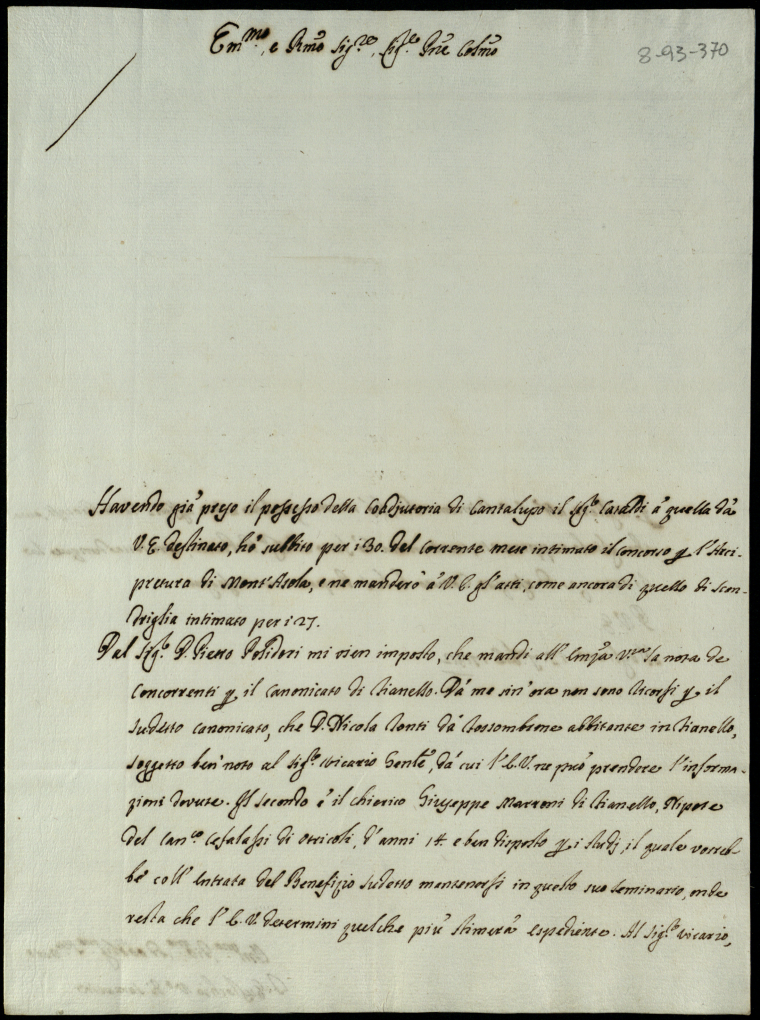 Em.mo, e Rmõ Sig.re, Sig.re Pñe Colmõ
8-93-370
Havendo già preso il possesso della Coadjutoria di Cantalupo il Sig.r Cataldi à quella dà
V. E. destinato, hò subbito per i 30. del corrente mese intimato il concorso p l'Arci-
pretura di Mont'Asola, e ne manderò à V. E. gl'atti, come ancora di quello di Scan-
driglia intimato per i 27.
Dal Sig.r D. Pietro Polidori mi vien imposto, che mandi all' Emza V.ra la nota de
Concorrenti p il Canonicato di Stianello. Dà me sin'ora non sono ricorsi p il
sudetto canonicato, che D. Nicola Conti dà Fossombrone abbitante in Stianello,
soggetto ben noto al Sig.r Vicario Gente, dà cui l'E. V. ne può prendere l'informa-
zioni dovute. Il secondo è il chierico Giuseppe Marroni di Stianello, Nipote
del Can.co Cesalassi di Otricoli, d'anni 14. e ben disposto p i studj, il quale vorreb-
be coll'entrata del Benefizio sudetto mantenersi in questo suo seminario, onde
resta che l'E. V. determini quelche più stimerà espediente. Al Sig.r Vicario,